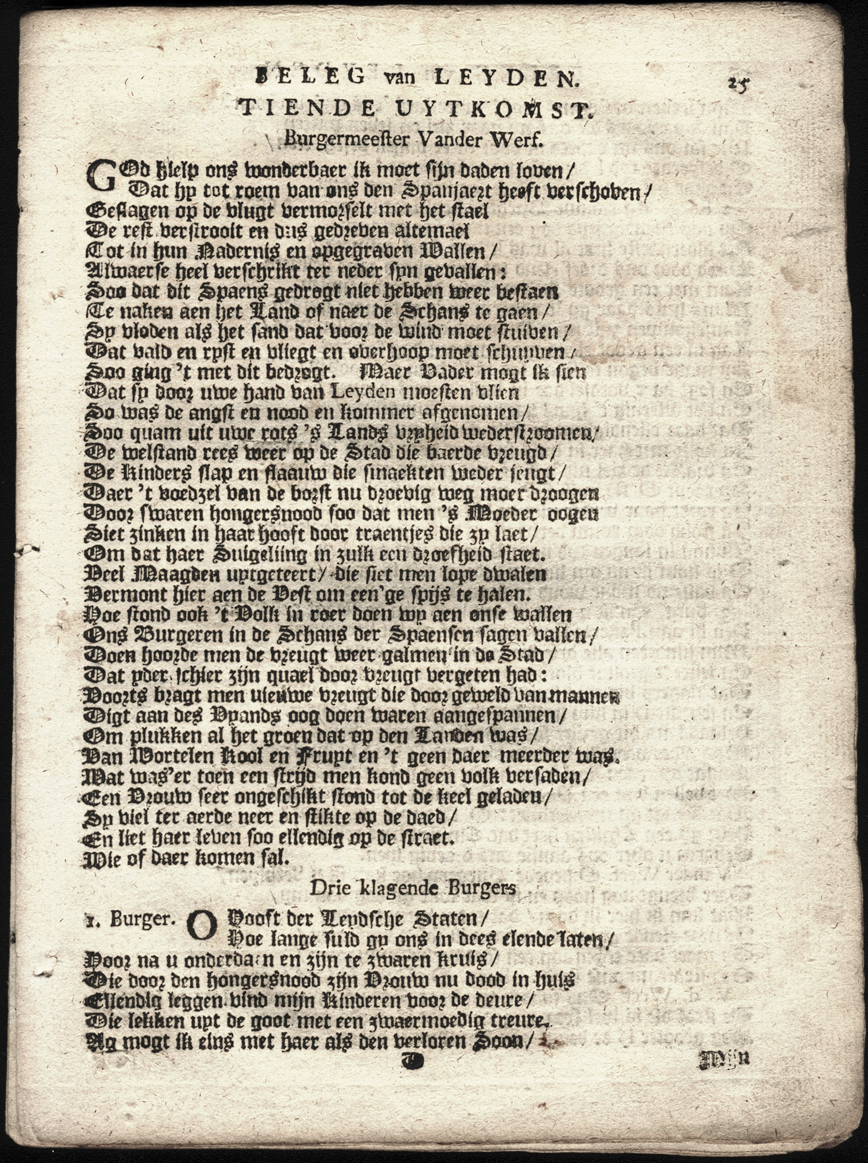 BELEG van LEYDEN. 25
TIENDE UYTKOMST.
Burgermeester Vander Werf.
GOd hielp ons wonderbaer ik moet sijn daden loven/
Dat hy tot roem van ons den Spanjaert heeft verschoven/
Geslagen op de vlugt vermorselt met het stael
De rest verstrooit en dus gedreven altemael
Tot in hun Nadernis en opgegraven Wallen/
Alwaerse heel verschrikt ter neder syn gevallen:
Soo dat dit Spaens gedrogt niet hebben weer bestaen
Te naken aen het Land of naer de Schans te gaen/
Sy vloden als het sand dat voor de wind moet stuiven/
Dat vald en ryst en vliegt en overhoop moet schuiven/
Soo ging 't met dit bedrogt. Maer Vader mogt ik sien
Dat sy door uwe hand van Leyden moesten vlien
So was de angst en nood en kommer afgenomen/
Soo quam uit uwe rots 's Lands vryheid wederstroomen/
De welstand rees weer op de Stad die baerde vreugd/
De Kinders slap en flaauw die smaekten weder jeugt/
Daer 't voedzel van de borst nu droevig weg moet droogen
Door swaren hongersnood soo dat men 's Moeder oogen
Siet zinken in haar hooft door traentjes die zy laet/
Om dat haer Suigeling in zulk een droefheid staet.
Veel Maagden uytgeteert/ die siet men lope dwalen
Vermont hier aen de Vest om een'ge spijs te halen.
Hoe stond ook 't Volk in roer doen wy aen onse wallen
Ons Burgeren in de Schans der Spaensen sagen vallen/
Doen hoorde men de vreugt weer galmen in de Stad/
Dat yder schier zijn quael door vreugt vergeten had:
Voorts bragt men nieuwe vreugt die door geweld van mannen
Digt aan des Vyands oog doen waren aangespannen/
Om plukken al het groen dat op den Landen was/
Van Wortelen Kool en Fruyt en 't geen daer meerder was.
Wat was'er toen een strijd men kond geen volk versaden/
Een Vrouw seer ongeschikt stond tot de keel geladen/
Sy viel ter aerde neer en stikte op de daed/
En liet haer leven soo ellendig op de straet.
Wie of daer komen sal.
Drie klagende Burgers
1. Burger. O Hooft der Leydsche Staten/
Hoe lange suld gy ons in dees elende laten/
Hoor na u onderdaen en zijn te zwaren kruis/
Die door den hongersnood zijn Vrouw nu dood in huis
Ellendig leggen vind mijn Kinderen voor de deure/
Die lekken uyt de goot met een zwaermoedig treure,
Ag mogt ik eins met haer als den verloren Soon/
D Mijn